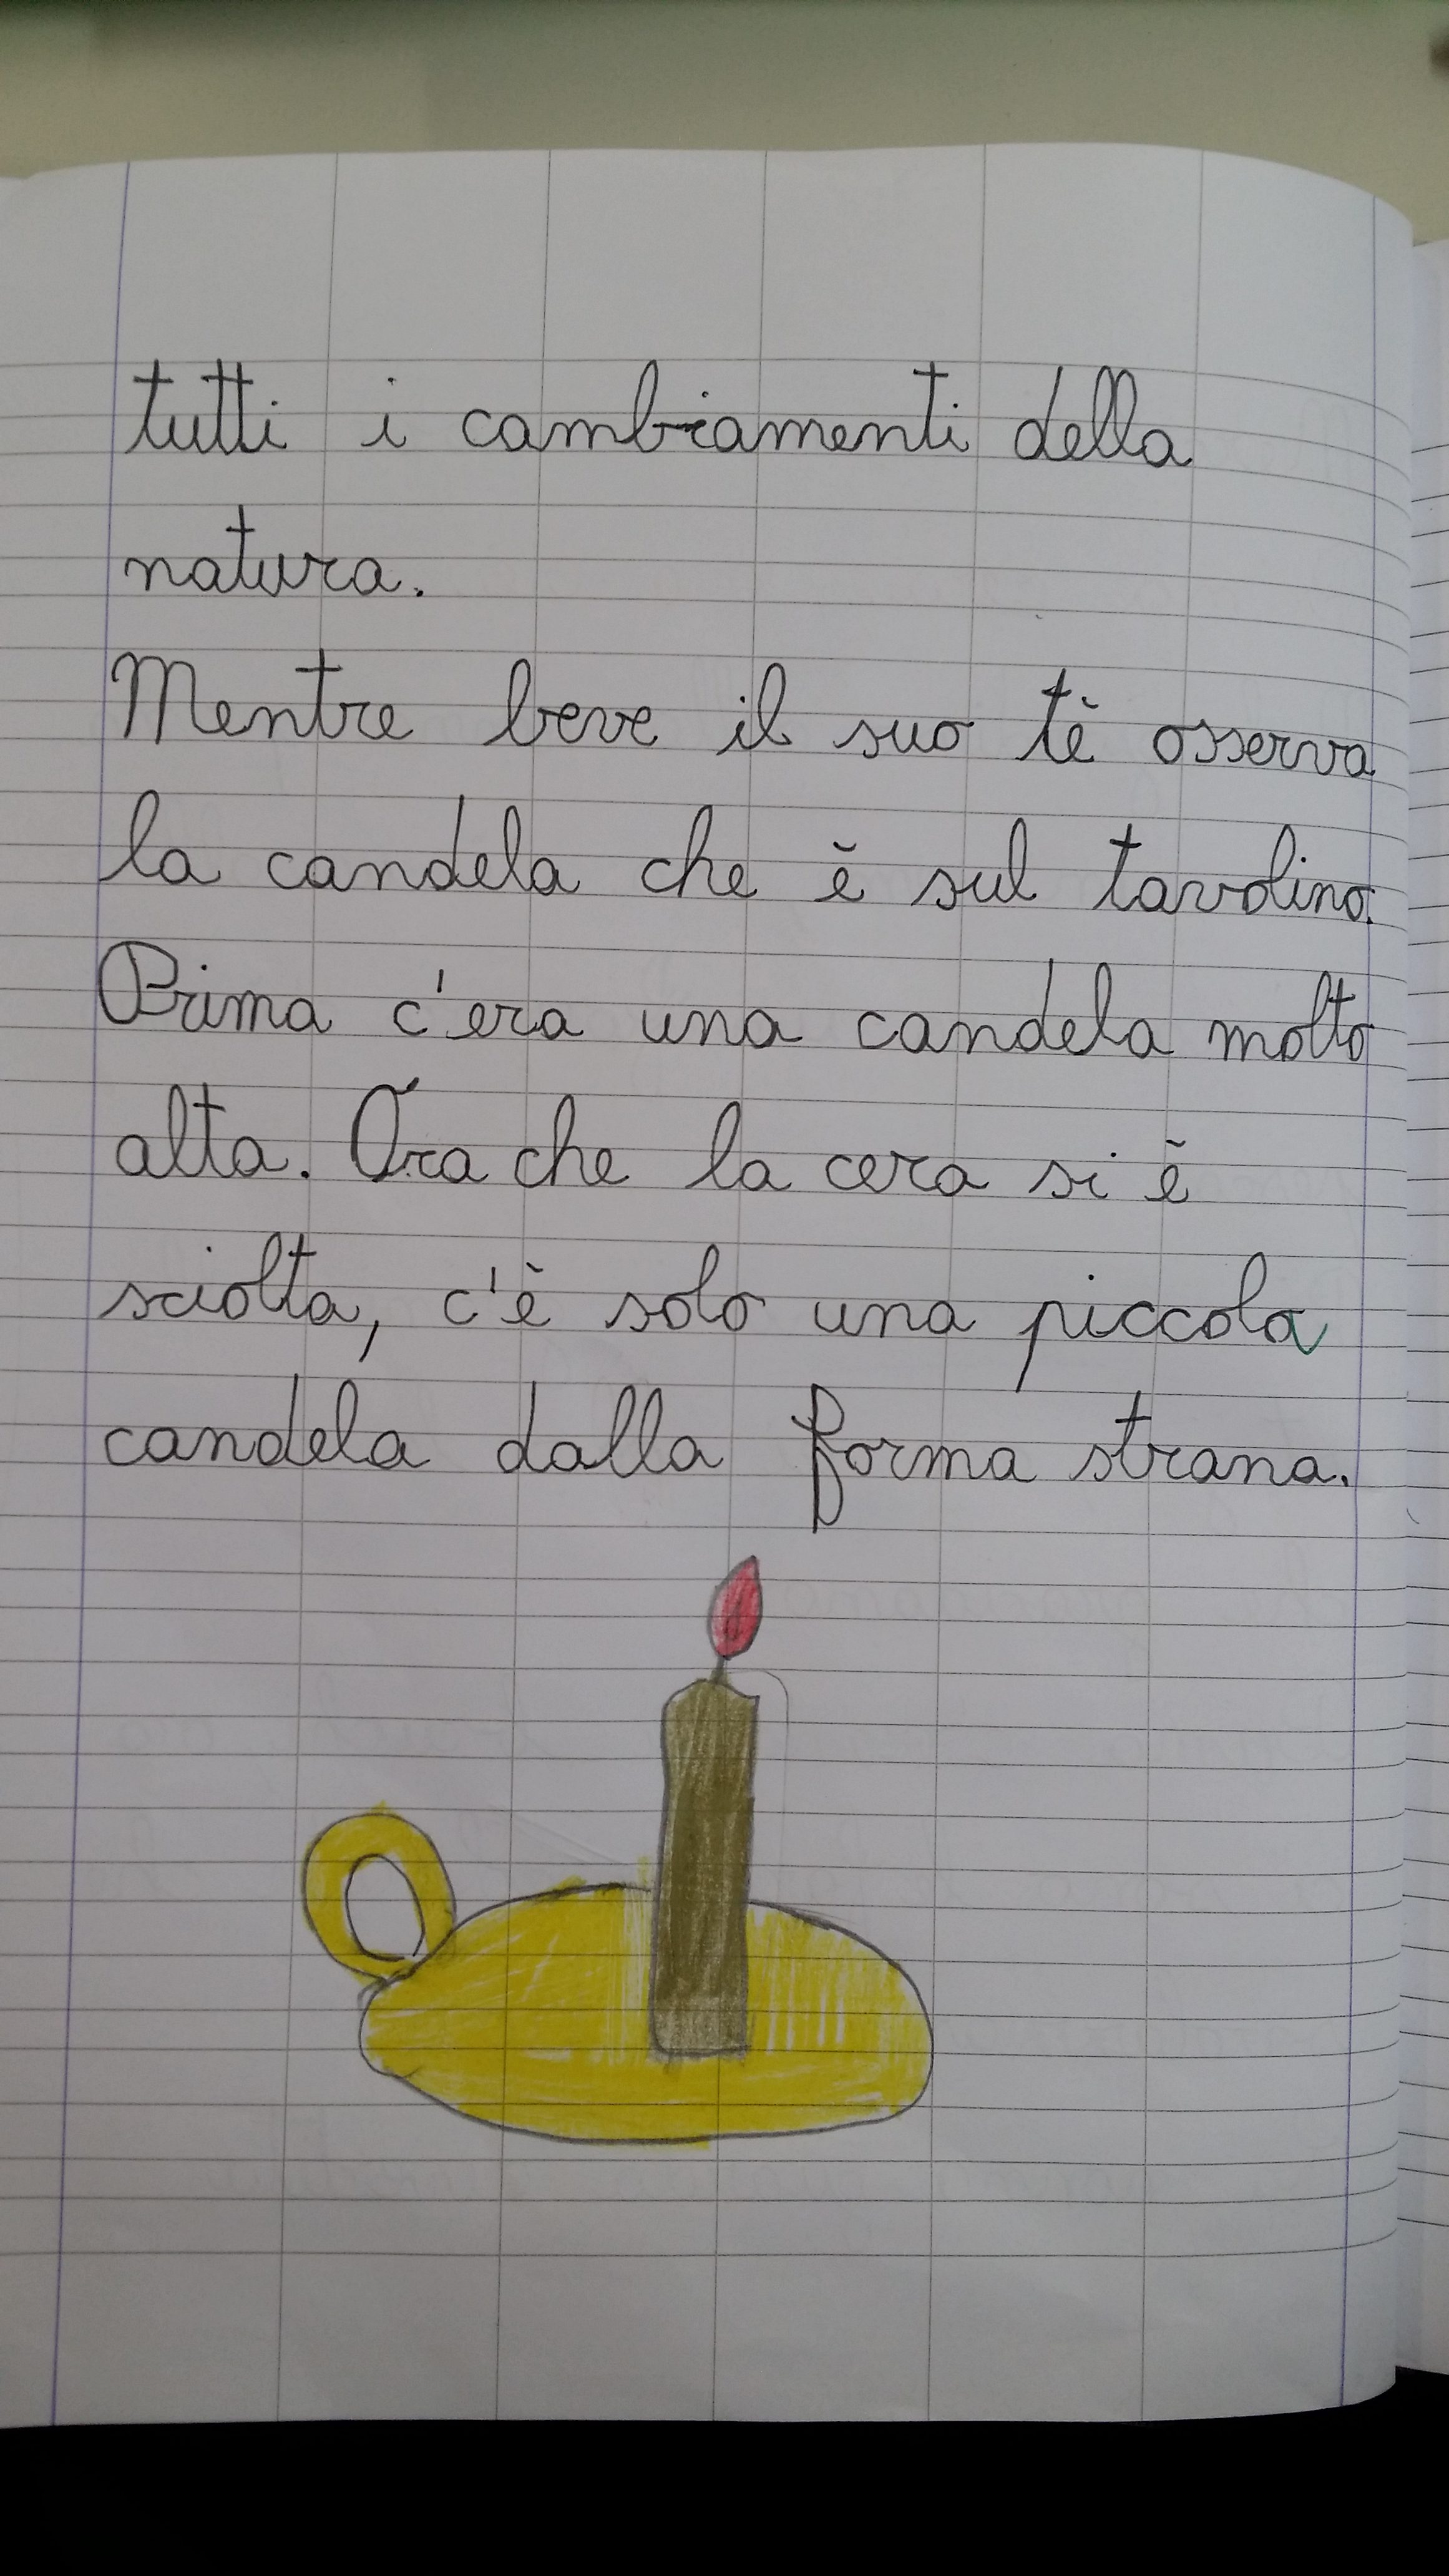 tutti i cambiamenti della
natura.
Mentre beve il suo tè osserva
la candela che è sul tavolino.
Prima c'era una candela molto
alta. Ora che la cera si è
sciolta, c'è solo una piccola
candela dalla forma strana.